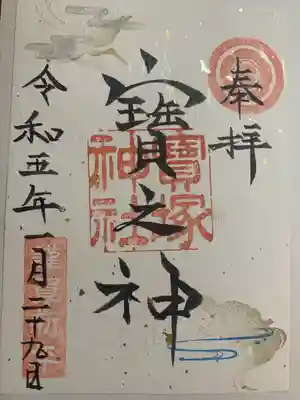 奉拝
寳之神
寳塚
神社
令和五年一月二十九日